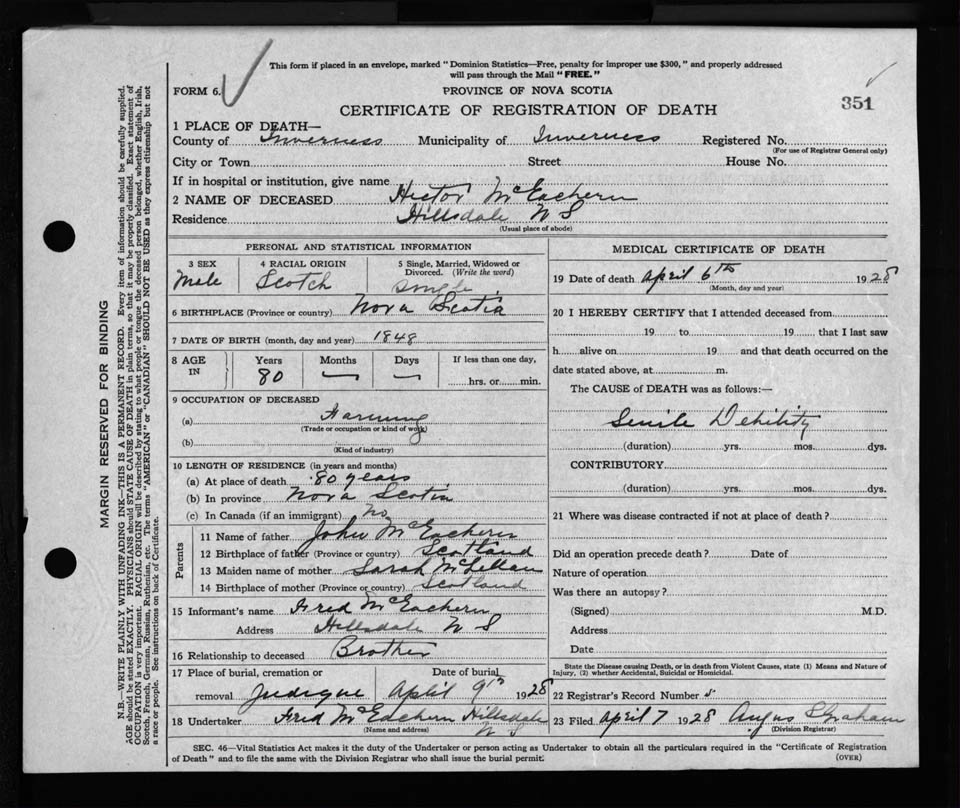 This form if placed in an envelope, marked "Dominion Statistics—Free, penalty for improper use $300," and properly addressed
will pass through the Mail "FREE."
FORM 6.
PROVINCE OF NOVA SCOTIA
CERTIFICATE OF REGISTRATION OF DEATH
351
1 PLACE OF DEATH—
County of Inverness Municipality of Inverness Registered No.
(For use of Registrar General only)
City or Town Street House No.
If in hospital or institution, give name
2 NAME OF DECEASED Hector McEachern
Residence Hillsdale N S
(Usual place of abode)
PERSONAL AND STATISTICAL INFORMATION
3 SEX 4 RACIAL ORIGIN 5 Single, Married, Widowed or
Divorced. (Write the word)
Male Scotch Single
6 BIRTHPLACE (Province or country) Nova Scotia
7 DATE OF BIRTH (month, day and year) 1848
8 AGE IN Years Months Days If less than one day,
80 — — hrs. or min.
9 OCCUPATION OF DECEASED
(a) Farming
(Trade or occupation or kind of work)
(b)
(Kind of industry)
10 LENGTH OF RESIDENCE (in years and months)
(a) At place of death 80 years
(b) In province Nova Scotia
(c) In Canada (if an immigrant) no
Parents
11 Name of father John McEachern
12 Birthplace of father (Province or country) Scotland
13 Maiden name of mother Sarah McLellan
14 Birthplace of mother (Province or country) Scotland
15 Informant's name Fred McEachern
Address Hillsdale N S
16 Relationship to deceased Brother
17 Place of burial, cremation or Date of burial
removal Judique April 9th 1928
18 Undertaker Fred McEachern Hillsdale
(Name and address) N S
MEDICAL CERTIFICATE OF DEATH
19 Date of death April 6th 1928
(Month, day and year)
20 I HEREBY CERTIFY that I attended deceased from
19 to 19 that I last saw
h alive on 19 and that death occurred on the
date stated above, at m.
The CAUSE of DEATH was as follows:—
Senile Debility
(duration) yrs. mos. dys.
CONTRIBUTORY
(duration) yrs. mos. dys.
21 Where was disease contracted if not at place of death?
Did an operation precede death? Date of
Nature of operation
Was there an autopsy?
(Signed) M.D.
Address
Date
State the Disease causing Death, or in death from Violent Causes, state (1) Means and Nature of
Injury, (2) whether Accidental, Suicidal or Homicidal.
22 Registrar's Record Number
23 Filed April 7 1928 Angus Graham
(Division Registrar)
SEC. 46—Vital Statistics Act makes it the duty of the Undertaker or person acting as Undertaker to obtain all the particulars required in the "Certificate of Registration
of Death" and to file the same with the Division Registrar who shall issue the burial permit.
(OVER)
MARGIN RESERVED FOR BINDING
N.B.—WRITE PLAINLY WITH UNFADING INK—THIS IS A PERMANENT RECORD. Every item of information should be carefully supplied.
AGE should be stated EXACTLY. PHYSICIANS should STATE CAUSE OF DEATH in plain terms, so that it may be properly classified. Exact statement of
OCCUPATION is very important. RACIAL ORIGIN will be described by stating to what people or tongue the deceased person belonged, whether English, Irish,
Scotch, French, German, Russian, Ruthenian, etc. The terms "AMERICAN" or "CANADIAN" SHOULD NOT BE USED as they express citizenship but not
a race or people. See instructions on back of Certificate.